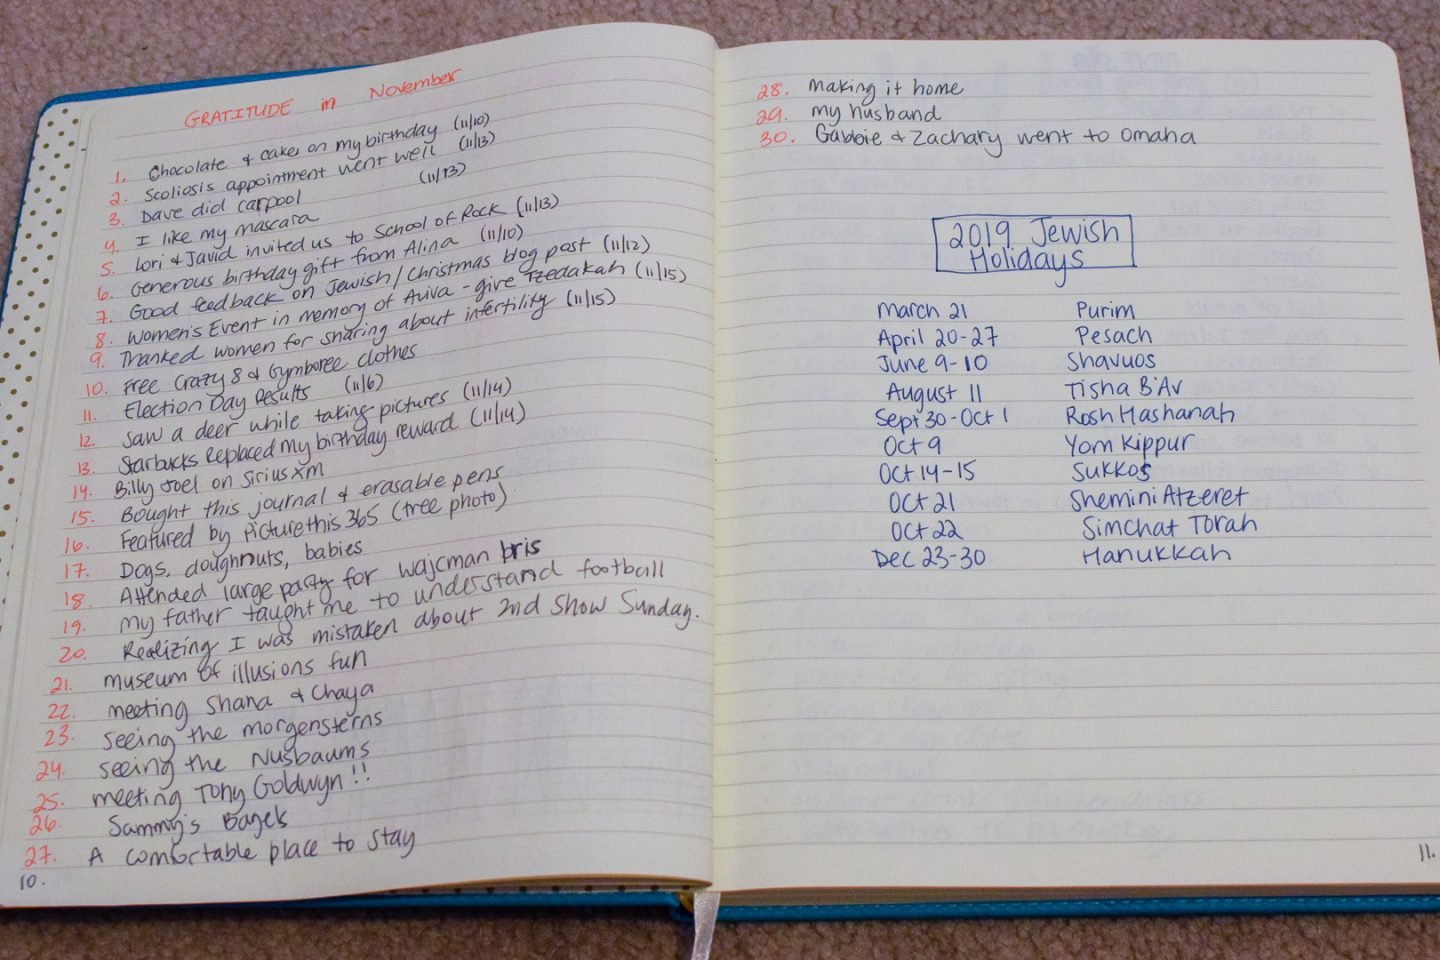 GRATITUDE in November
1. Chocolate & cake on my birthday (11/10)
2. Scoliosis appointment went well (11/13)
3. Dave did carpool (11/13)
4. I like my mascara
5. Lori & Javid invited us to School of Rock (11/13)
6. Generous birthday gift from Alina (11/10)
7. Good feedback on Jewish/Christmas blog post (11/12)
8. Women's Event in memory of Aviva - give Tzedakah (11/15)
9. Thanked women for sharing about infertility (11/15)
10. Free Crazy 8 & Gymboree clothes
11. Election Day Results (11/6)
12. Saw a deer while taking pictures (11/14)
13. Starbucks Replaced my birthday reward (11/14)
14. Billy Joel on Sirius xm
15. Bought this journal & erasable pens
16. Featured by Picturethis365 (tree photo)
17. Dogs, doughnuts, babies
18. Attended large party for wajcman bris
19. my father taught me to understand football
20. Realizing I was mistaken about 2nd Show Sunday.
21. museum of illusions fun
22. meeting Shana & Chaya
23. seeing the morgensterns
24. seeing the Nusbaums
25. meeting Tony Goldwyn!!
26. Sammy's Bagels
27. A comfortable place to stay
10.
28. making it home
29. my husband
30. Gabbie & Zachary went to Omaha
2019 Jewish
Holidays
March 21 Purim
April 20-27 Pesach
June 9-10 Shavuos
August 11 Tisha B'Av
Sept 30-Oct 1 Rosh Hashanah
Oct 9 Yom Kippur
Oct 14-15 Sukkos
Oct 21 Shemini Atzeret
Oct 22 Simchat Torah
Dec 23-30 Hanukkah
11.